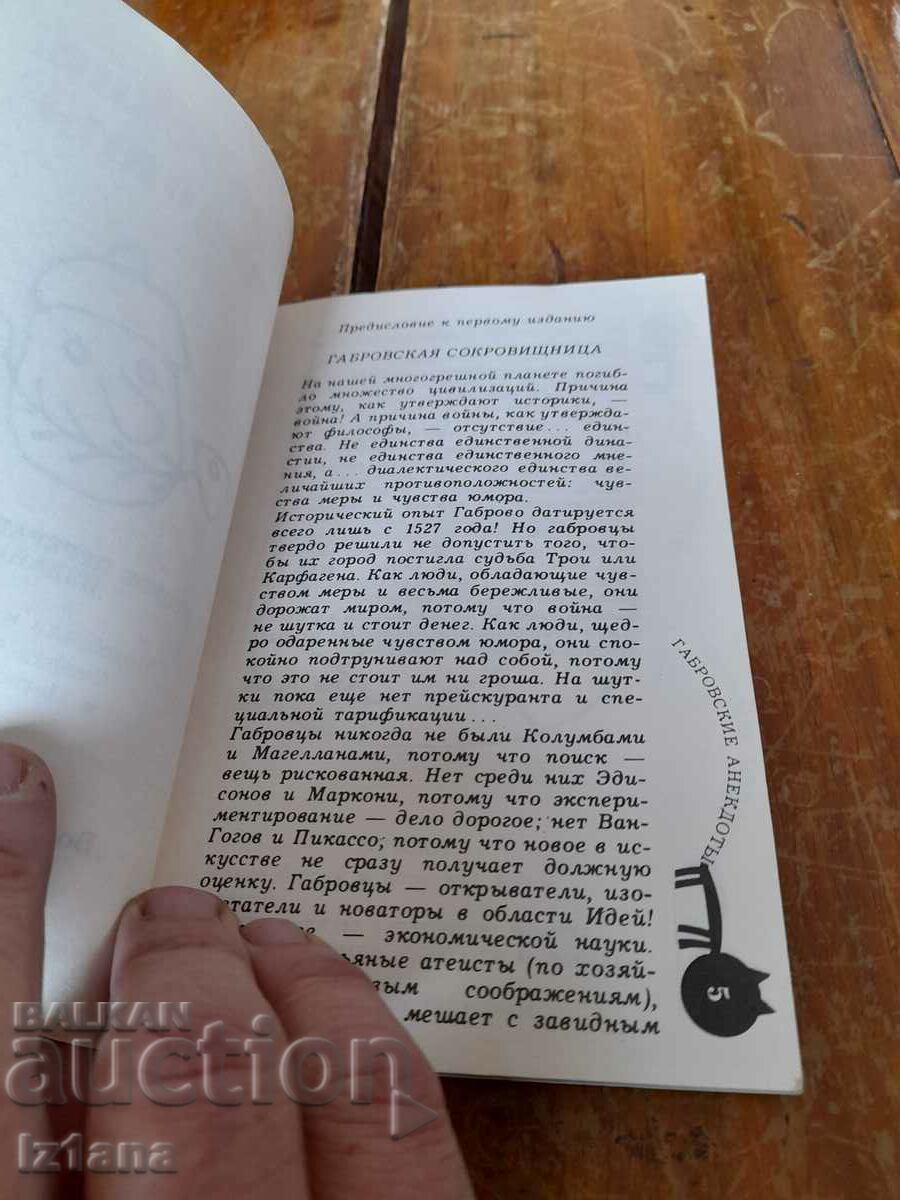 Предисловие к первому изданию
ГАБРОВСКАЯ СОКРОВИЩНИЦА
На нашей многогрешной планете погиб-
ло множество цивилизаций. Причина
этому, как утверждают историки, —
война! А причина войны, как утвержда-
ют философы, — отсутствие... един-
ства. Не единства единственной дина-
стии, не единства единственного мне-
ния, а... диалектического единства ве-
личайших противоположностей: чув-
ства меры и чувства юмора.
Исторический опыт Габрово датируется
всего лишь с 1527 года! Но габровцы
твердо решили не допустить того, что-
бы их город постигла судьба Трои или
Карфагена. Как люди, обладающие чув-
ством меры и весьма бережливые, они
дорожат миром, потому что война —
не шутка и стоит денег. Как люди, щед-
ро одаренные чувством юмора, они спо-
койно подтрунивают над собой, потому
что это не стоит им ни гроша. На шут-
ки пока еще нет прейскуранта и спе-
циальной тарификации...
Габровцы никогда не были Колумбами
и Магелланами, потому что поиск —
вещь рискованная. Нет среди них Эди-
сонов и Маркони, потому что экспери-
ментирование — дело дорогое; нет Ван-
Гогов и Пикассо, потому что новое в ис-
кусстве не сразу получает должную
оценку. Габровцы — открыватели, изо-
татели и новаторы в области Идей!
— экономической науки.
атеисты (по хозяй-
соображениям),
мешает с завидным
ГАБРОВСКИЕ АНЕКДОТЫ
5
BALKAN
auction
Iz1ana